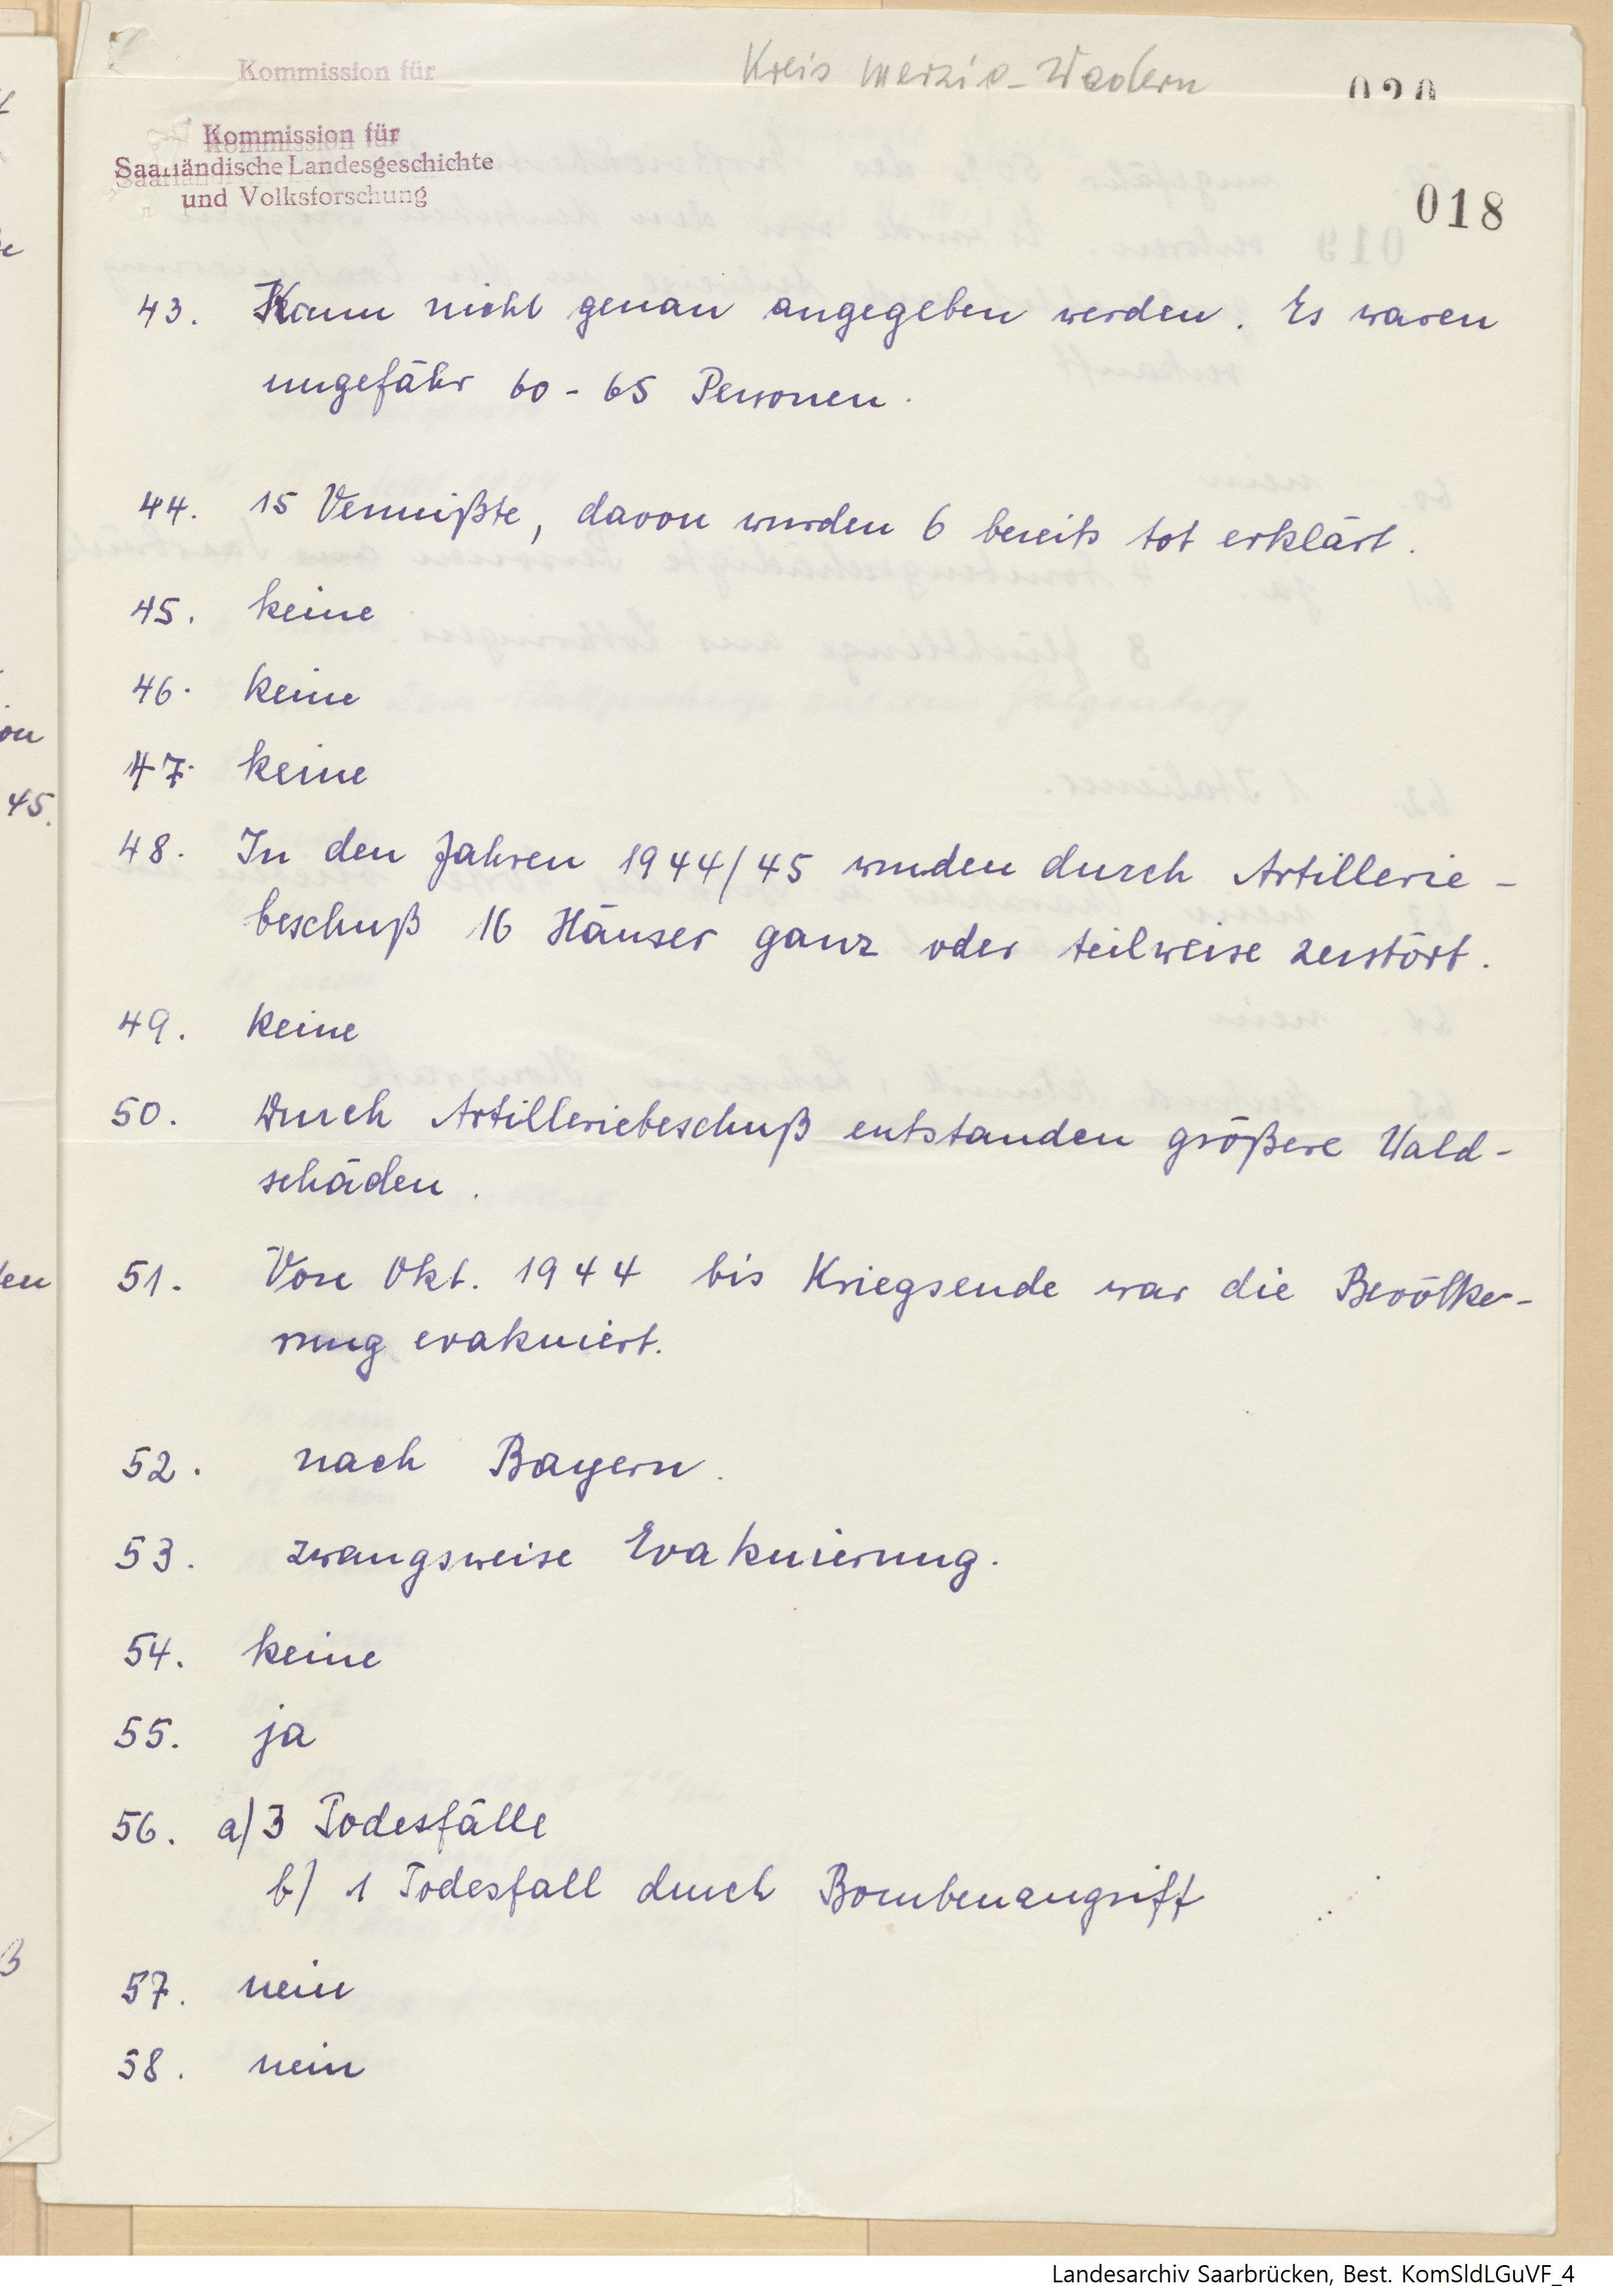 Kommission für
Kreis Merzig-Wadern
020
Kommission für
Saarländische Landesgeschichte
und Volksforschung
018
43. Kann nicht genau angegeben werden. Es waren
ungefähr 60 - 65 Personen.
44. 15 Vermißte, davon wurden 6 bereits tot erklärt.
45. keine
46. keine
47. keine
48. In den Jahren 1944/45 wurden durch Artillerie-
beschuß 16 Häuser ganz oder teilweise zerstört.
49. keine
50. Durch Artilleriebeschuß entstanden größere Wald-
schäden.
51. Von Okt. 1944 bis Kriegsende war die Bevölke-
rung evakuiert.
52. nach Bayern.
53. zwangsweise Evakuierung.
54. keine
55. ja
56. a/ 3 Todesfälle
b/ 1 Todesfall durch Bombenangriff
57. nein
58. nein
Landesarchiv Saarbrücken, Best. KomSldLGuVF_4